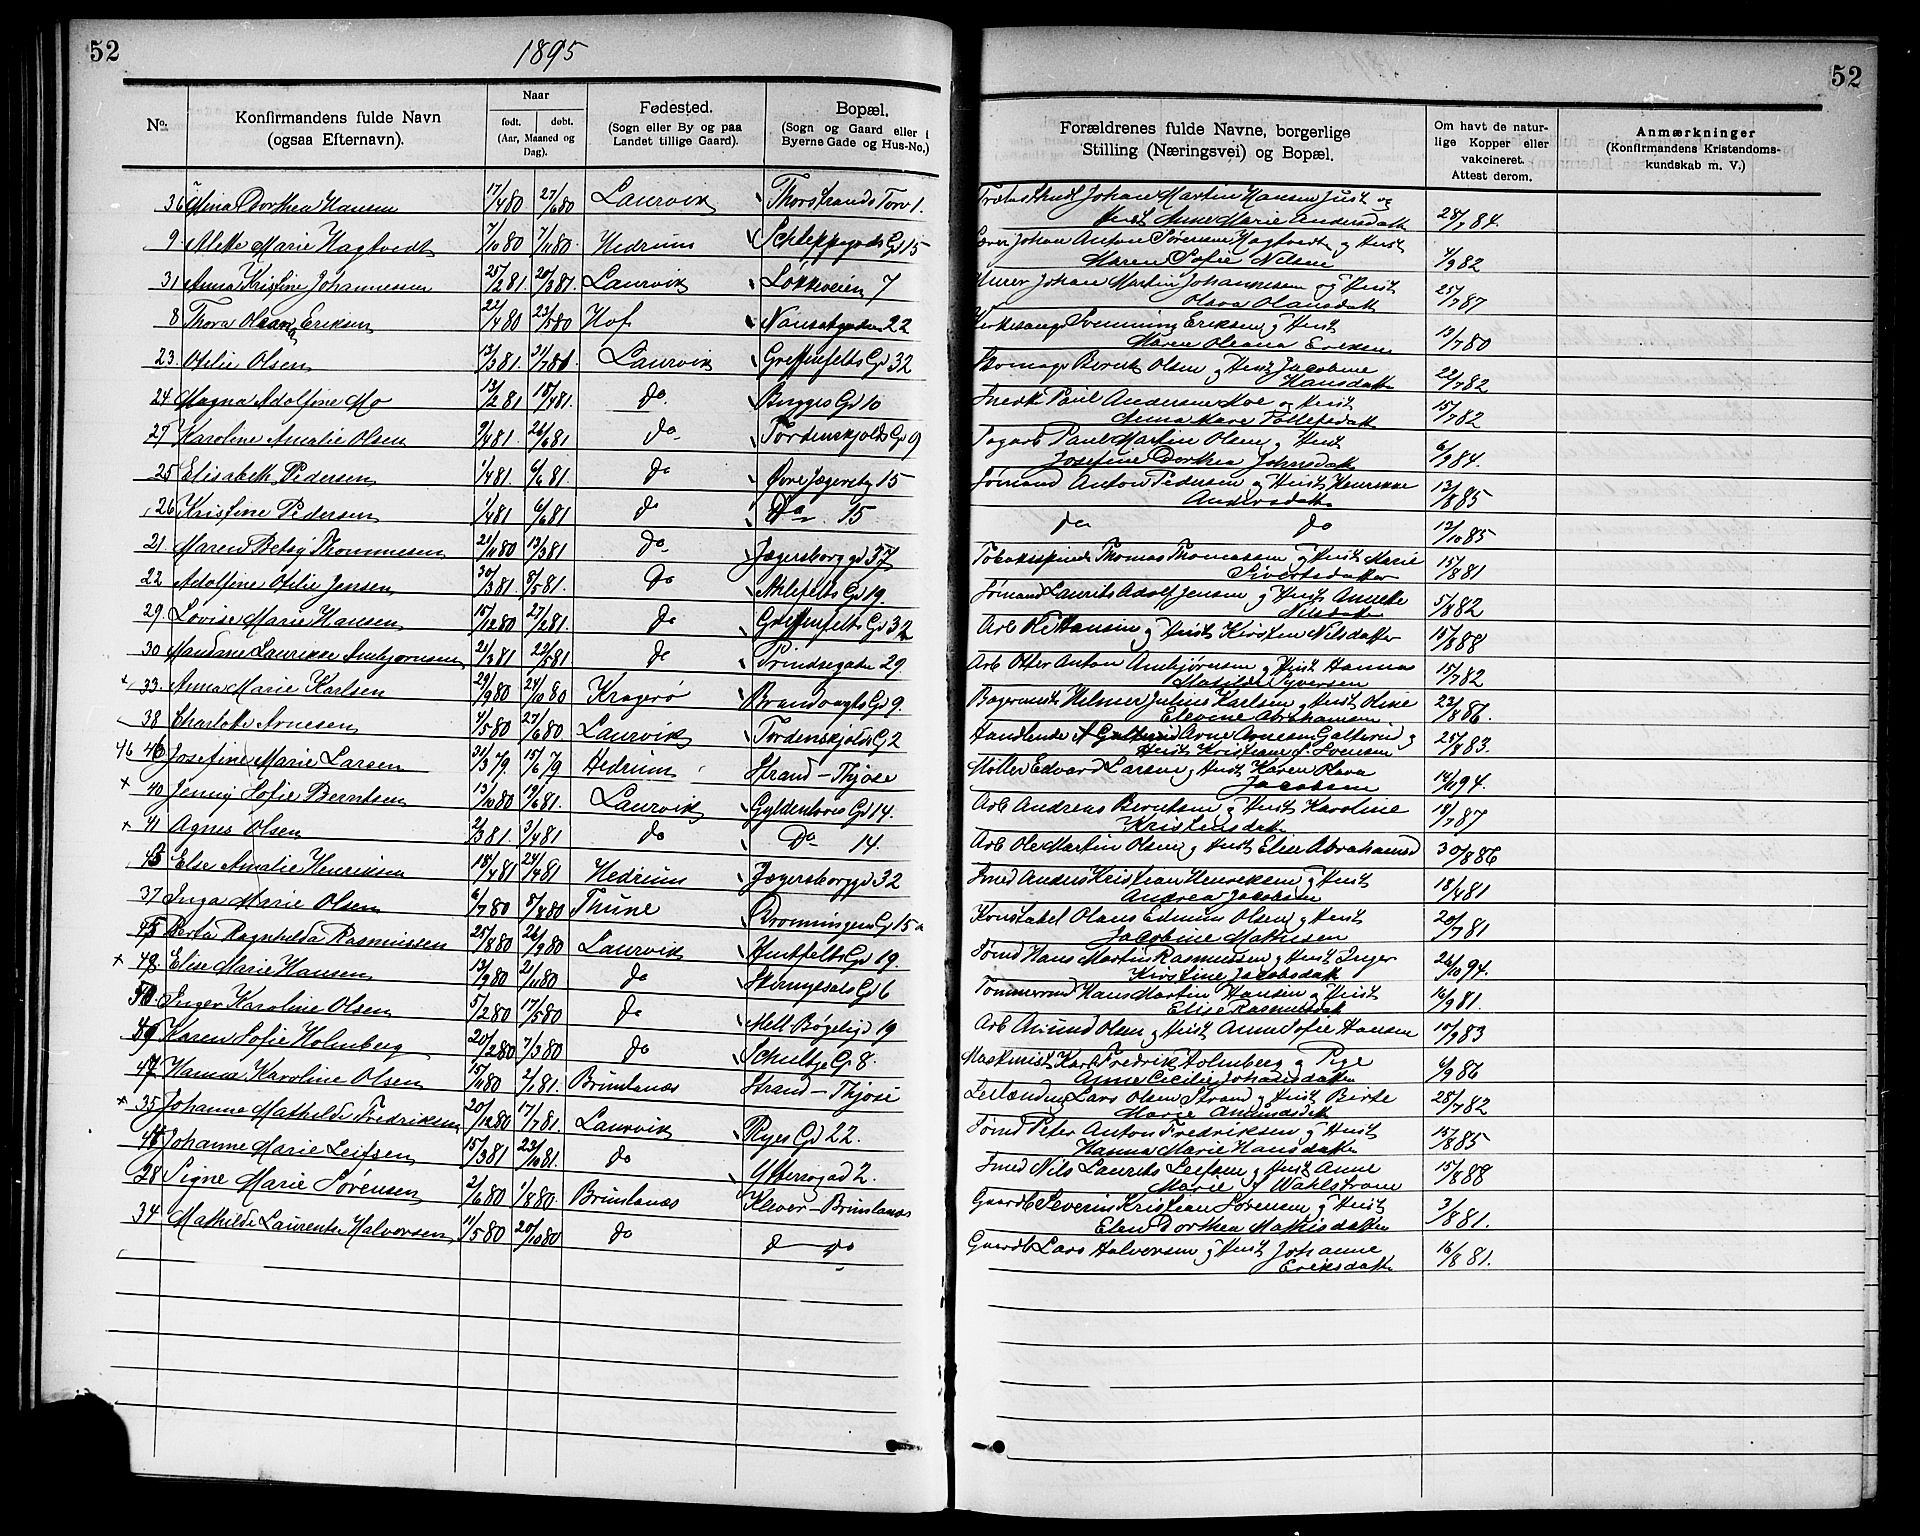 52
1895
No.
Konfirmandens fulde Navn
(ogsaa Efternavn).
Naar
født. døbt.
(Aar, Maaned og
Dag).
Fødested.
(Sogn eller By og paa
Landet tillige Gaard).
Bopæl.
(Sogn og Gaard eller i
Byerne Gade og Hus-No.)
36 Dorthea Hansen 17/4 80 27/6 80 Laurvik Thorstrands Torv 1.
9 Alette Marie Hagtvedt 7/10 80 7/11 80 Hedrum Schleppegrels Gd 15
31 Anna Kristine Johannesen 25/2 81 20/3 81. Laurvik Løkkeveien 7
8 Thora Eriksen 22/4 80 23/5 80 Hof Nansetgaden 22
23. Otilie Olsen 13/3 81. 31/7 81 Laurvik Greffenfelts Gd 32
24 Magna Adolfine Mo 13/2 81 18/4 81. do. Bugges Gd 10
27 Karoline Amalie Olsen 9/4 81. 26/6 81 do. Tordenskjolds Gd 9
25 Elisabeth Pedersen 1/4 81. 6/6 81 do Øvre Jegersbg 15
26 Kristine Pedersen 1/4 81 6/6 81 do Do 15
21 Maren Betsy Thommesen 21/11 80 13/3 81 do. Jegersborg gd 37
22 Adolfine Otilie Jensen 30/3 81. 8/5 81. Do Ahlefelts Gd 19.
29. Lovise Marie Hansen 15/12 80 27/2 81. do Greffenfelts Gd 32
30 Laurikke Anbjørnsen 21/3 81 22/5 81 do Prindsegaden 29.
x 33. Anna Marie Karlsen 29/9 80 24/10 80 Kragerø Brandvagts Gd 9.
38 Charlotte Arnesen 4/5 80 27/6 80 Laurvik Tordenskjolds G 2
46 Josefine Marie Larsen 31/3 79. 15/6 79 Hedrum Strand-Thjøse
x 40 Jenny Sofie Berntsen 13/10 80 19/6 81. Laurvik Gyldenløves Gd 14.
x 41 Agnes Olsen 2/3 81. 3/4 81 do Do 14.
Else Amalie Henriksen 18/4 81 24/4 81 Hedrum Jegersborggd 32
37 Inga Marie Olsen 6/7 80 8/8 80 Thune Dronningens Gd 15 a
45 Berta Ragnhilda Rasmussen 25/8 80 26/9 80 Laurvik Huitfelts Gd 19.
x 48. Elise Marie Hansen 13/9 80 21/11 80 do Skiringsals Gd 6
50. Inger Karoline Olsen 5/2 80 17/5 80 do Mell-Bøgeligd 19
49 Karen Sofie Holmberg 20/2 80 7/3 80 do Schultze G 8.
47 Hanna Karoline Olsen 15/11 80 2/1 81. Brunlanæs Strand-Thjøse
x 35 Johanne Mathilde Fredriksen 20/12 80 17/7 81. Laurvik Ryes Gd 22.
44 Johanne Marie Leifsen 15/3 81 23/10 81. do Yttersøgad 2.
28 Signe Marie Sørensen 2/6 80 1/8 80. Brunlanæs Klever-Brunlanæs
34 Mathilde Laurentse Halvorsen 11/5 80 20/10 80 do d do
52
Forældrenes fulde Navne, borgerlige
Stilling (Næringsvei) og Bopæl.
Om havt de natur-
lige Kopper eller
vakcineret.
Attest derom.
Anmærkninger
(Konfirmandens Kristendoms-
kundskab m. V.)
Johan Martin Hansen Just og
Hust Anne Marie Andersdatt 28/7 84.
Johan Anton Sørensen Hagtvedt og Hust
Maren Sofie Nilsen 4/9 82
Murer Johan Martin Johannesen og Hust
Olava Olausdatt 25/7 87
Kirkesanger Svenning Eriksen og Hust
Maren Oleana Eriksen 13/7 80
Skomag Bernt Olsen og Hust Jacobine
Hansdatt 22/7 82
Snedk Paul Andersen Moe og Hust
Anna Mare Tollefsdatt 15/7 82
Paul Martin Olsen og Hust
Josefine Dorthea Johnsdatt 6/9 84.
Sømand Anton Pedersen og Hust Henrikke
Andersdatt 13/8 85
do do 12/10 85
Tobakspind Thomas Thomassen og Hust Marie
Sivertsdatter 15/8 81
Sømand Laurits Adolf Jensen og Hust Annette
Nilsdatt 5/8 82
Arb Hansen og Hust Kirsten Nilsdatter 15/8 88
Arb Otter Anton Anbjørnsen og Hust Hanna
Matilde Syversen 15/7 82
Bagersvend Helmer Julius Karlsen og Hust Oline
Elevine Abrahamsen 23/8 86.
Handlende Arne Arnesen Galterud og
Hust Kristiane f. Svensen 25/8 83.
Møller Edvard Larsen og Hust Karen Olava
Jacobsen 14/11 94.
Arb Andreas Berntsen og Hust Karoline
Kristensdatt 18/7 87
Arb Ole Martin Olsen og Hust Elise Abrahamsd 30/8 86
Smed Anders Kristian Henriksen og Hust
Andrea Jacobsen 18/4 81
Konstabel Olaus Edmun Olsen og Hust
Jacobine Mathisen 20/7 81
Sømd Hans Martin Rasmussen og Hust Inger
Kirstine Jacobsdatt 26/10 94.
Tømmermd Hans Martin Hansen og Hust
Elise Rasmusdatt 16/9 81.
Arb Amund Olsen og Hust Anne Sofie Hansen 10/9 83
Maskinist Karl Fredrik Holmberg og Pige
Anne Cicilie Johansdatter 6/9 86
Leilænding Lars Olsen Strand og Hust Birte
Marie Amundsdtt 28/7 82
Sømd Peter Anton Fredriksen og Hust
Hanna Marie Hansdatter 15/8 85
Smed Nils Laurits Leifsen og Hust Anne
Marie f Wahlstrøm 15/8 88
Gaardb Severin Kristian Sørensen og Hust
Elen Dorthea Mathisdatter 3/8 81.
Gaardb Lars Halvorsen og Hust Johanne
Eriksdatt 16/8 81.